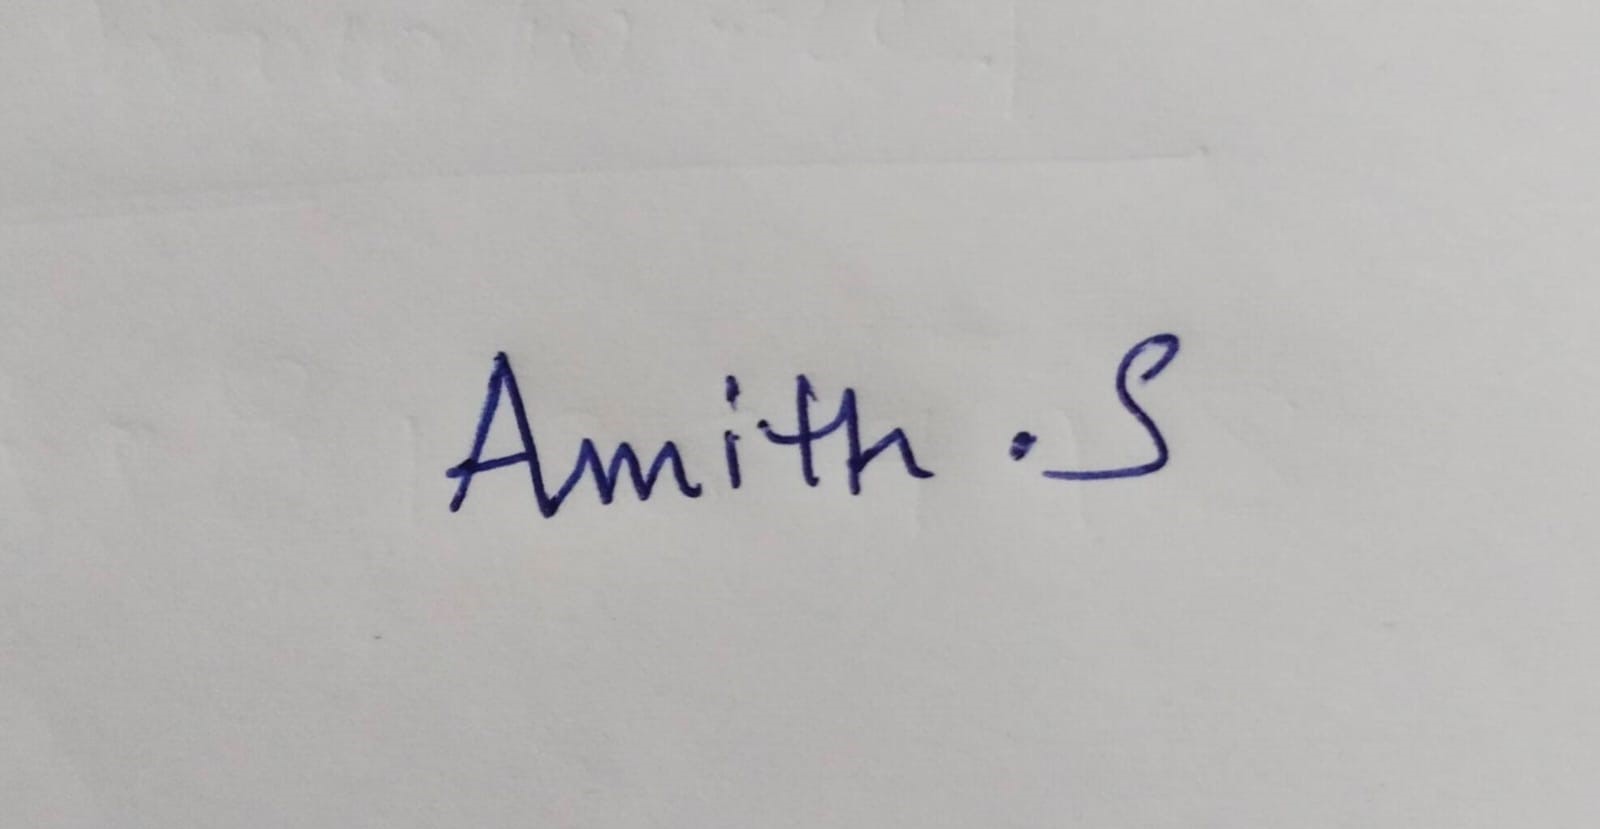 Amith . S